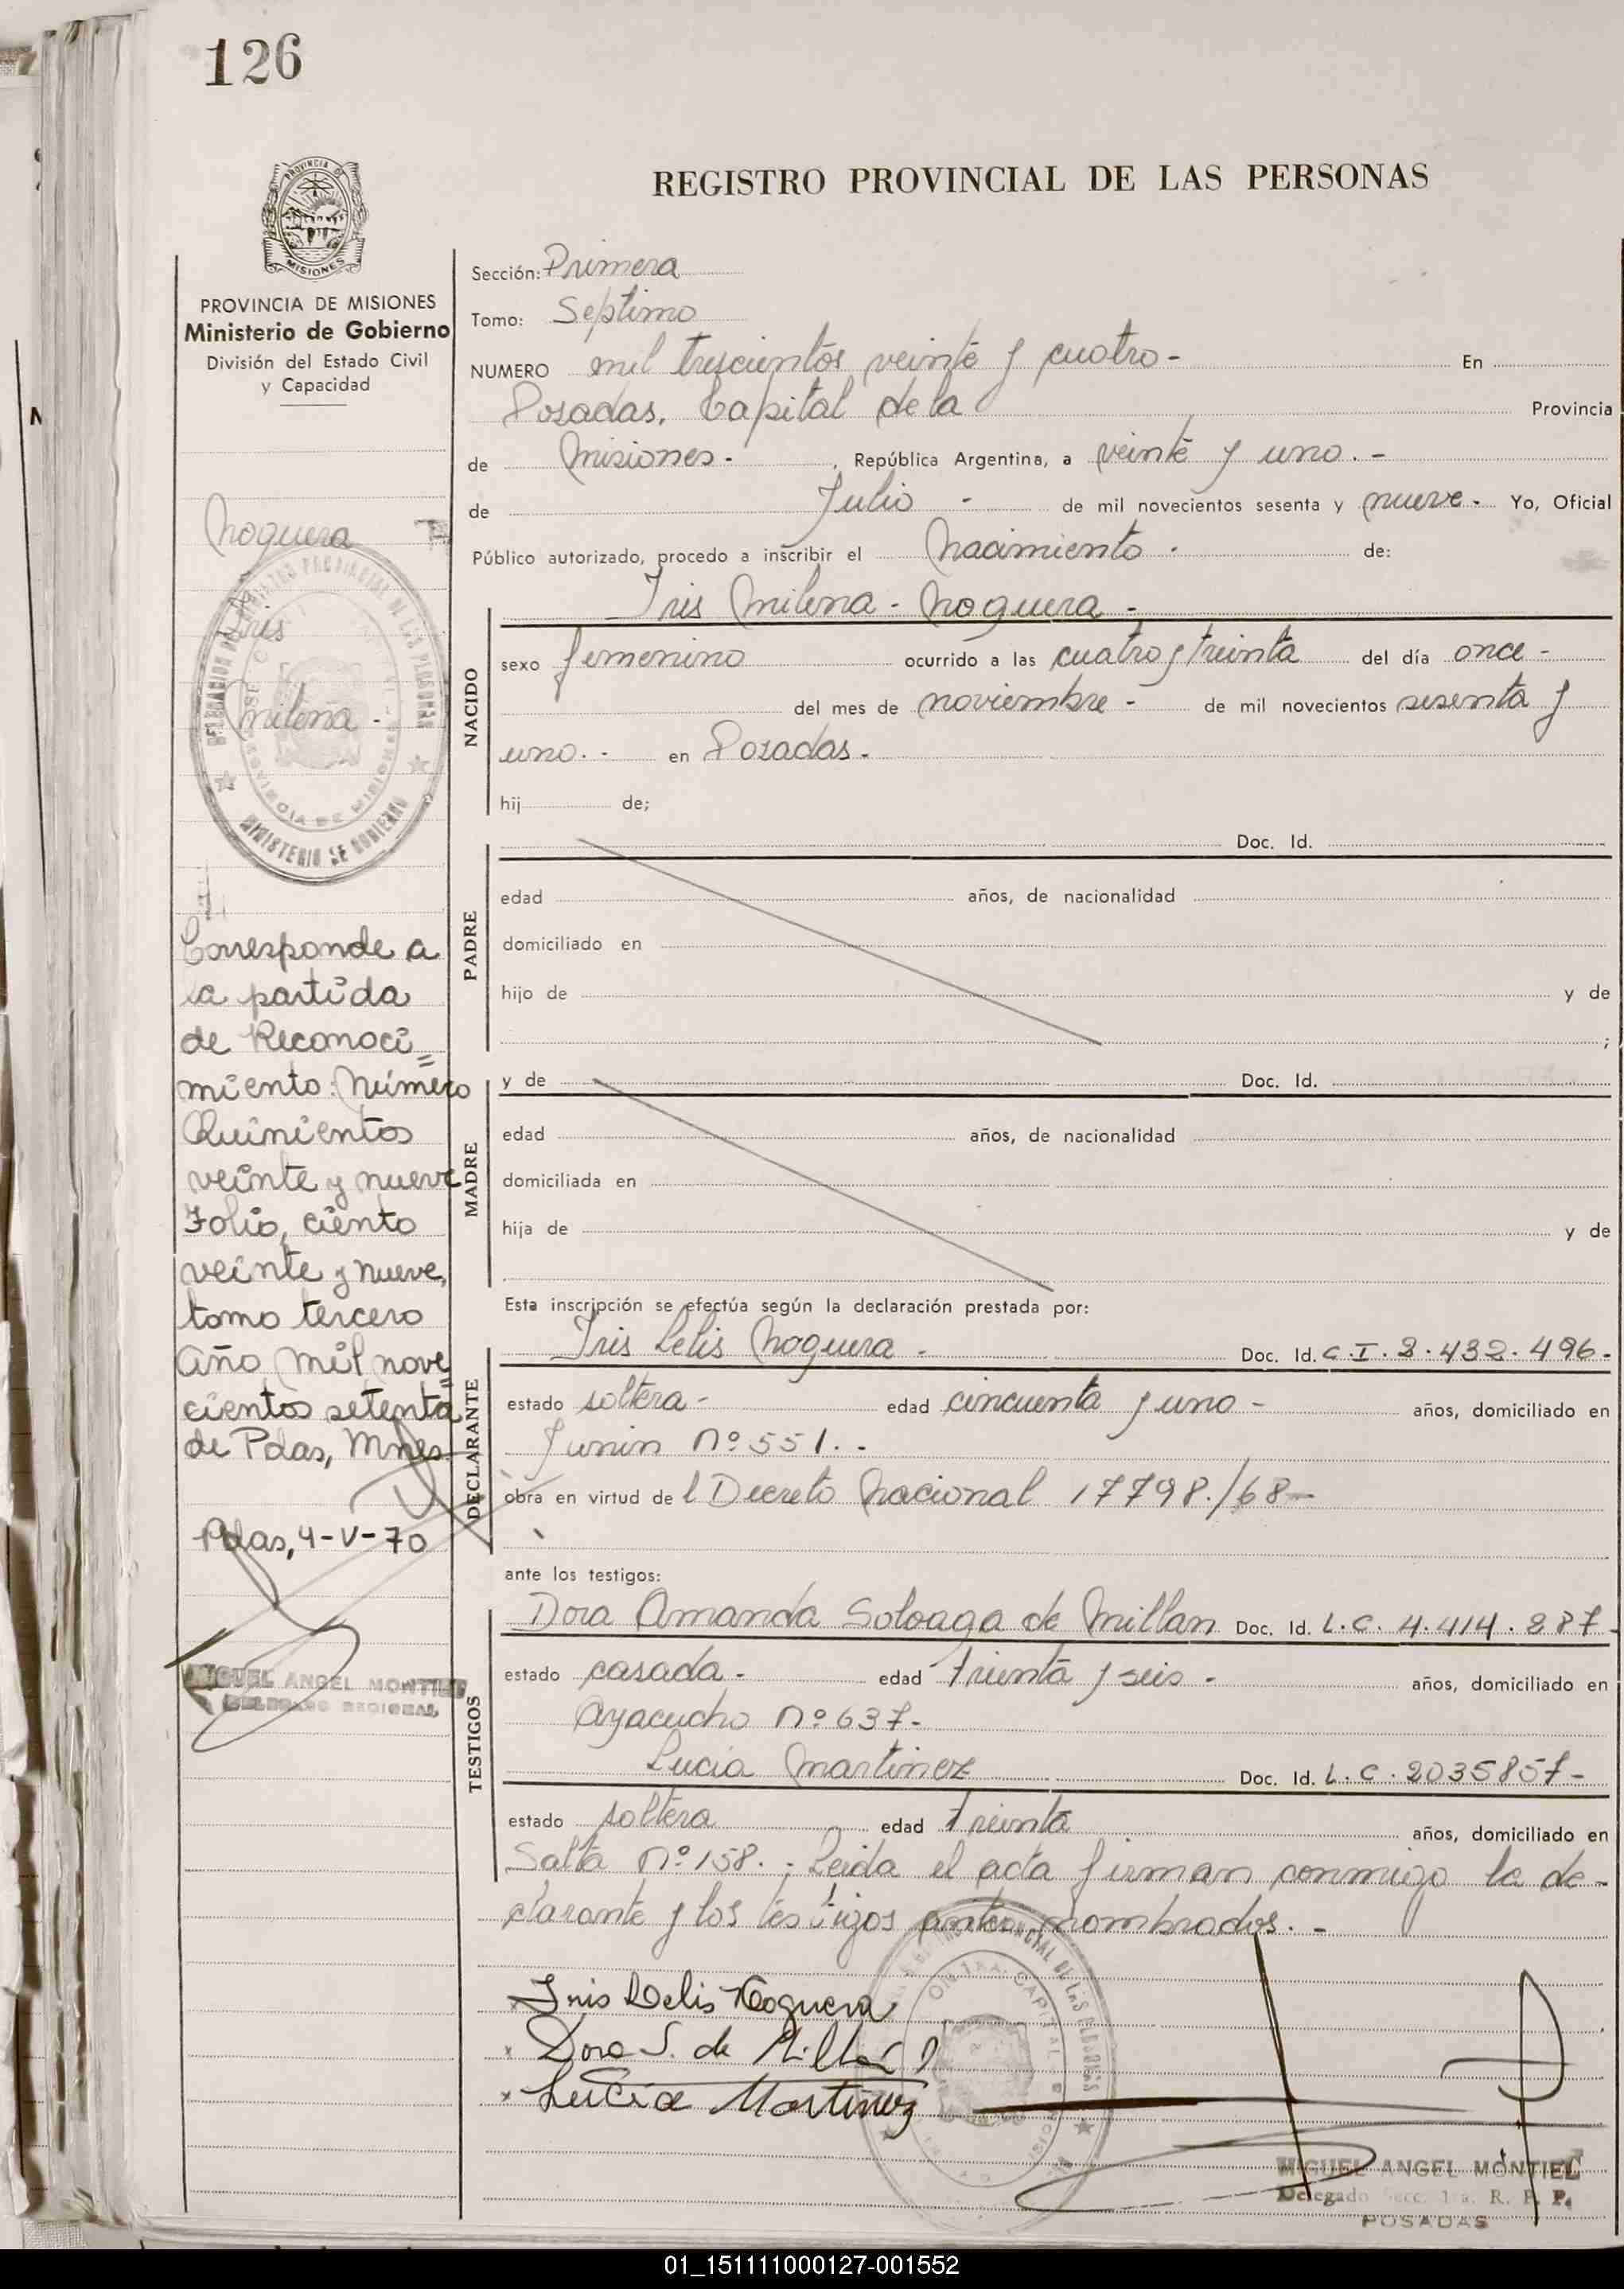 126
PROVINCIA DE
MISIONES
PROVINCIA DE MISIONES
Ministerio de Gobierno
División del Estado Civil
y Capacidad
Noguera
Iris
Milena -
Corresponde a
la partida
de Reconoci=
miento: Número
Quinientos
veinte y nueve
Folio, ciento
veinte y nueve,
tomo tercero
año mil nove=
cientos setenta
de Pdas, Mnes.
Pdas, 4-V-70
MIGUEL ANGEL MONTIEL
DELEGADO REGIONAL
REGISTRO PROVINCIAL DE LAS PERSONAS
Sección: Primera
Tomo: Septimo
NUMERO mil trescientos veinte y cuatro - En
Posadas, Capital de la Provincia
de Misiones - , República Argentina, a veinte y uno. -
de Julio - de mil novecientos sesenta y nueve - Yo, Oficial
Público autorizado, procedo a inscribir el Nacimiento - de:
Iris Milena - Noguera -
NACIDO
sexo femenino ocurrido a las cuatro y treinta del día once -
del mes de noviembre - de mil novecientos sesenta y
uno. - en Posadas -
hij de;
PADRE
Doc. Id.
edad años, de nacionalidad
domiciliado en
hijo de y de
;
MADRE
y de Doc. Id.
edad años, de nacionalidad
domiciliada en
hija de y de
Esta inscripción se efectúa según la declaración prestada por:
DECLARANTE
Iris Lelis Noguera - Doc. Id. C.I. 2.432.496-
estado soltera - edad cincuenta y uno - años, domiciliado en
Junin Nº 551. -
obra en virtud de l Decreto Nacional 17798./68-
ante los testigos:
TESTIGOS
Dora Amanda Soloaga de Millan Doc. Id. L.C. 4.414.287-
estado casada - edad treinta y seis - años, domiciliado en
Ayacucho Nº 637-
Lucia Martinez Doc. Id. L.C. 2035857-
estado soltera edad treinta años, domiciliado en
Salta Nº 158. - Leida el acta firman conmigo la de-
clarante y los testigos antes nombrados. -
x Iris Lelis Noguera
x Dora S. de Millan
x Lucia Martinez
MIGUEL ANGEL MONTIEL
Delegado Secc. 1ra. R. P. P.
POSADAS
01_151111000127-001552